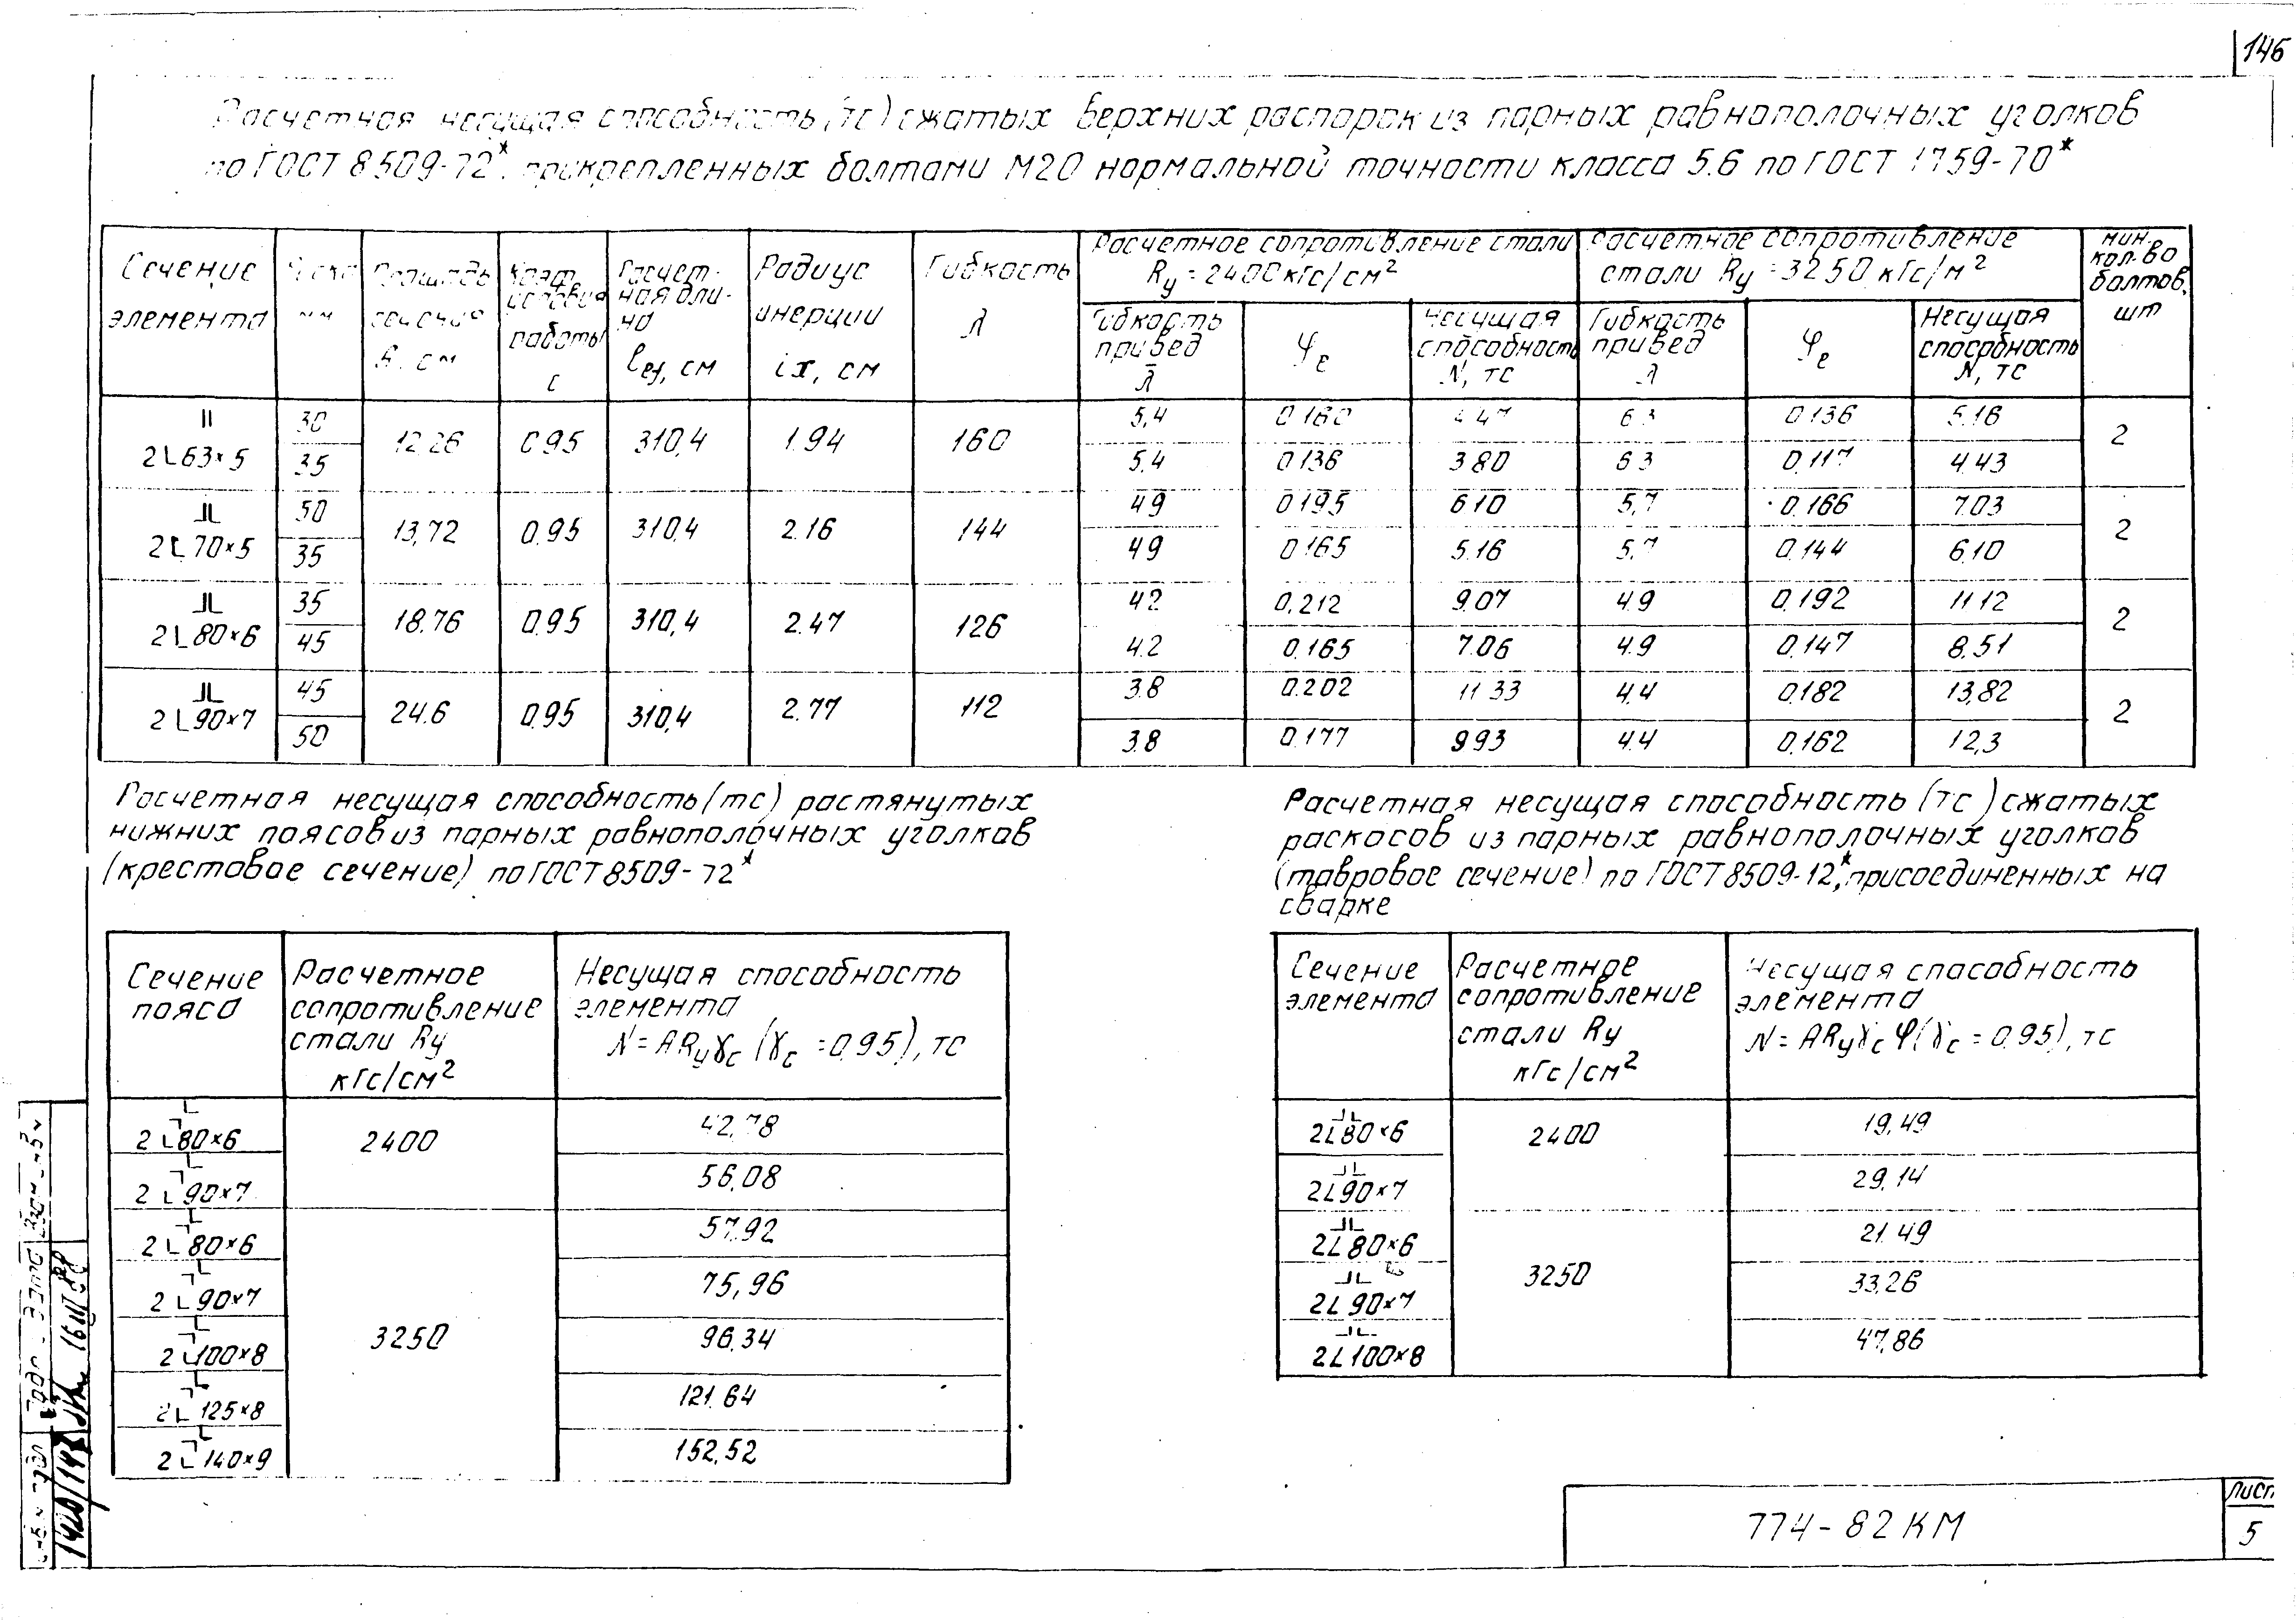 146
Расчетная несущая способность (тс) сжатых верхних распорок из парных равнополочных уголков
по ГОСТ 8509-72*. прикрепленных болтами М20 нормальной точности класса 5.6 по ГОСТ 1759-70*
Сечение элемента
мм
Площадь сечения
условия работы
Расчет-ная дли-на lef, см
Радиус инерции ix, см
Гибкость λ
Расчетное сопротивление стали Ry = 2400 кгс/см²
Расчетное сопротивление стали Ry = 3250 кгс/м²
мин. кол-во болтов, шт
Гибкость привед λ̄
φe
Несущая способность N, тс
Гибкость привед λ
φe
Несущая способность N, тс
2L63×5 30 12.26 0.95 310,4 1.94 160 5,4 0.160 4.47 6.3 0.136 5.16 2
35 5.4 0.136 3.80 6.3 0.117 4.43
2L70×5 50 13,72 0.95 310,4 2.16 144 4.9 0.195 6.10 5,7 0.166 7.03 2
35 4.9 0.165 5.16 5.7 0.144 6.10
2L80×6 35 18.76 0.95 310,4 2.47 126 4.2 0.212 9.07 4.9 0.192 11.12 2
45 4.2 0.165 7.06 4.9 0.147 8.51
2L90×7 45 24.6 0.95 310,4 2.77 112 3.8 0.202 11.33 4.4 0.182 13,82 2
50 3.8 0.177 9.93 4.4 0.162 12,3
Расчетная несущая способность (тс) растянутых
нижних поясов из парных равнополочных уголков
(крестовое сечение) по ГОСТ 8509-72*
Сечение пояса
Расчетное сопротивление стали Ry кгс/см²
Несущая способность элемента N = ARyγc (γc = 0.95), тс
2L80×6 2400 42,78
2L90×7 56,08
2L80×6 57.92
2L90×7 75,96
2L100×8 3250 96,34
2L125×8 121.64
2L140×9 152,52
Расчетная несущая способность (тс) сжатых
раскосов из парных равнополочных уголков
(тавровое сечение) по ГОСТ 8509-72*, присоединенных на
сварке
Сечение элемента
Расчетное сопротивление стали Ry кгс/см²
Несущая способность элемента N = ARyγcφ (γc = 0.95), тс
2L80×6 2400 19,49
2L90×7 29,14
2L80×6 21.49
2L90×7 3250 33,26
2L100×8 47,86
774-82КМ
Лист
5